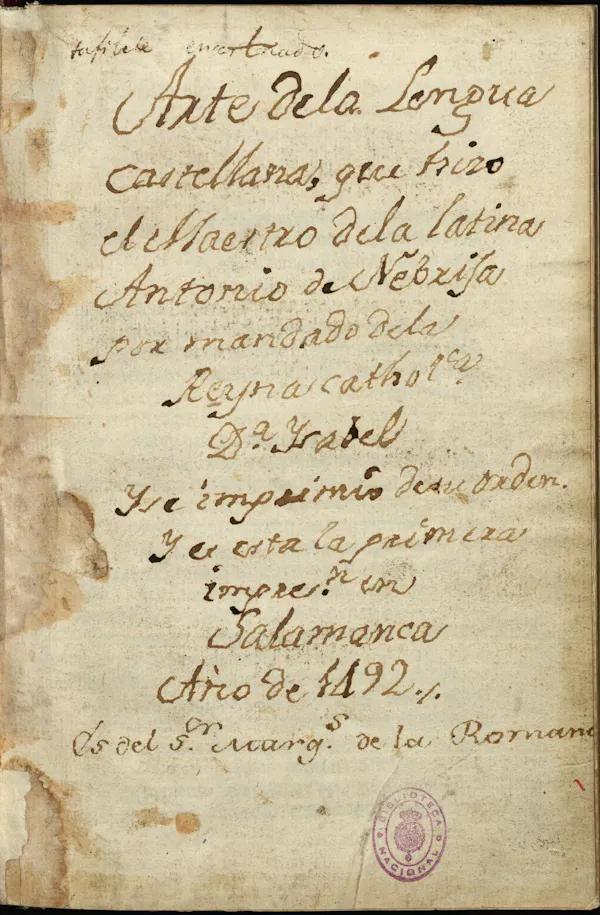 tafilete encartonado.
Arte dela Lengua
Castellana, que hizo
el Maestro dela latina
Antonio de Nebrisa
por mandado dela
Reyna cathol.ca
D.a Ysabel
Y se imprimió de su orden.
Y es esta la primera
impres.n en
Salamanca
Año de 1492./.
Es del S.or Marq.s de la Romana
BIBLIOTECA
NACIONAL